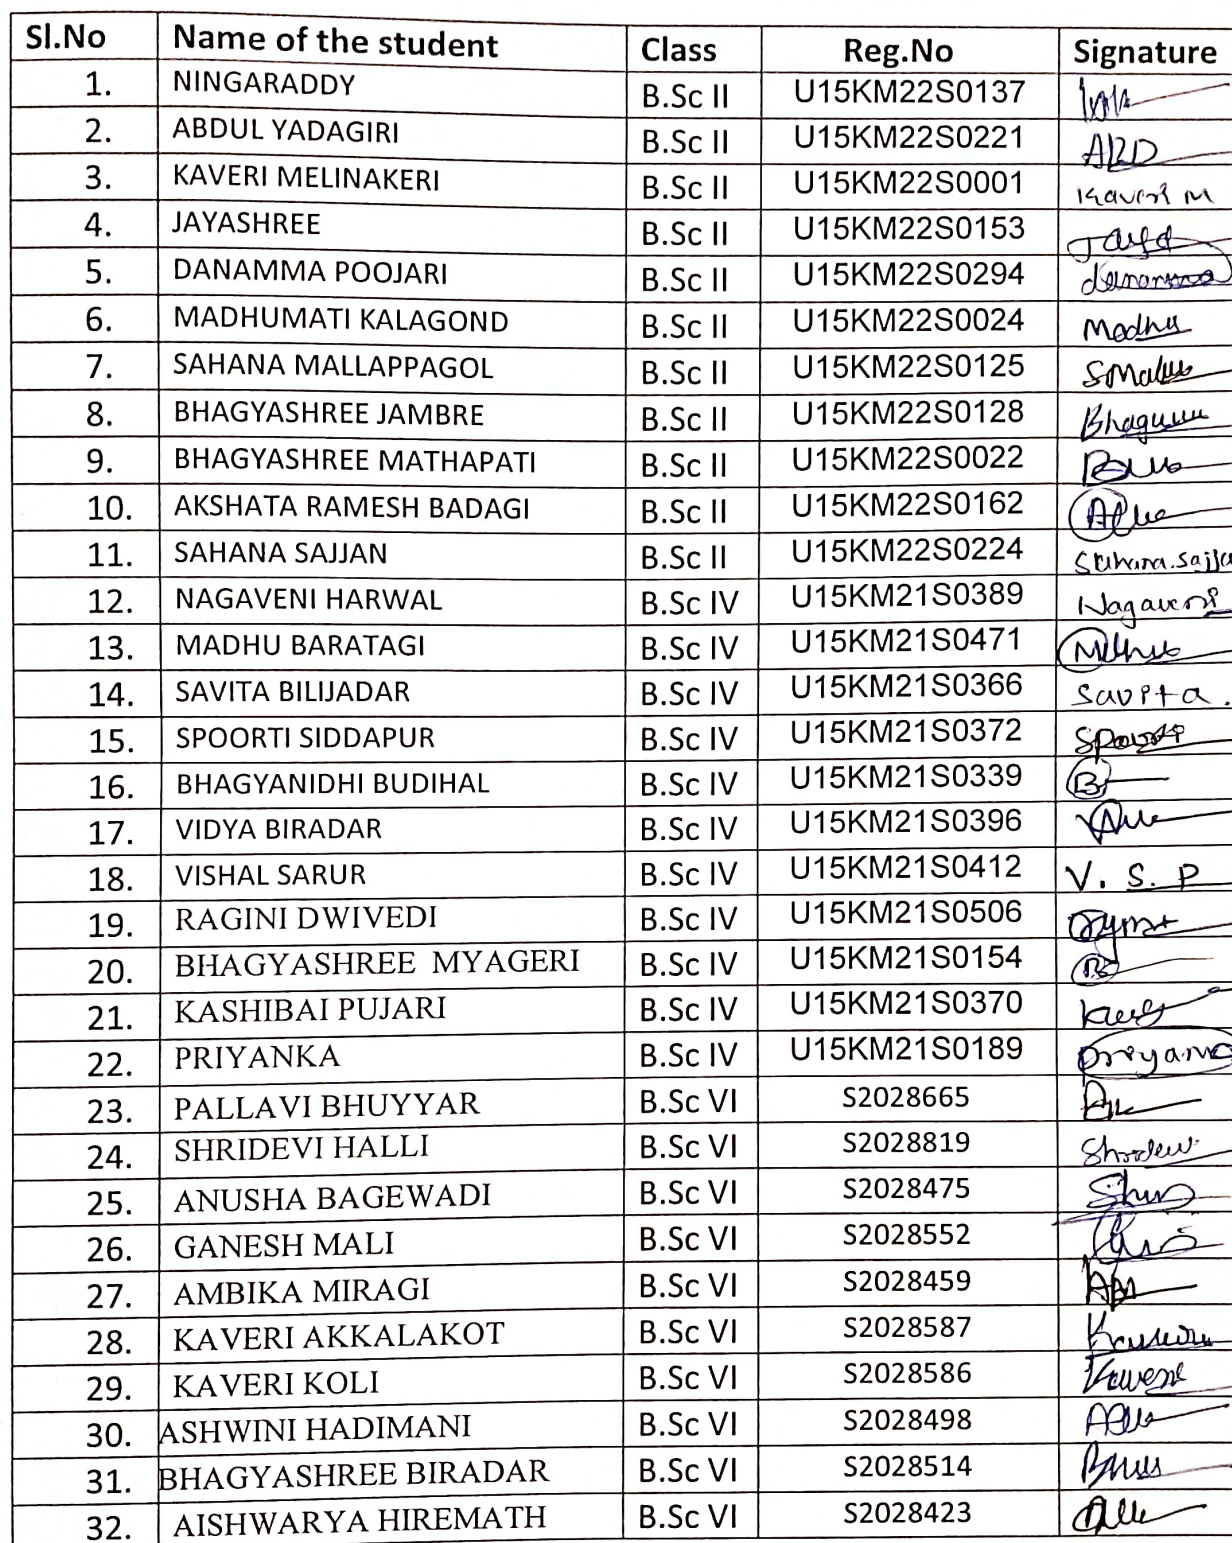 Sl.No Name of the student Class Reg.No Signature
1. NINGARADDY B.Sc II U15KM22S0137
2. ABDUL YADAGIRI B.Sc II U15KM22S0221 ABD
3. KAVERI MELINAKERI B.Sc II U15KM22S0001 Kaveri M
4. JAYASHREE B.Sc II U15KM22S0153
5. DANAMMA POOJARI B.Sc II U15KM22S0294 danamma
6. MADHUMATI KALAGOND B.Sc II U15KM22S0024 Madhu
7. SAHANA MALLAPPAGOL B.Sc II U15KM22S0125
8. BHAGYASHREE JAMBRE B.Sc II U15KM22S0128
9. BHAGYASHREE MATHAPATI B.Sc II U15KM22S0022
10. AKSHATA RAMESH BADAGI B.Sc II U15KM22S0162
11. SAHANA SAJJAN B.Sc II U15KM22S0224 Sahana.Sajja
12. NAGAVENI HARWAL B.Sc IV U15KM21S0389 Nagaveni
13. MADHU BARATAGI B.Sc IV U15KM21S0471
14. SAVITA BILIJADAR B.Sc IV U15KM21S0366 Savita.
15. SPOORTI SIDDAPUR B.Sc IV U15KM21S0372
16. BHAGYANIDHI BUDIHAL B.Sc IV U15KM21S0339 B
17. VIDYA BIRADAR B.Sc IV U15KM21S0396
18. VISHAL SARUR B.Sc IV U15KM21S0412 V. S. P
19. RAGINI DWIVEDI B.Sc IV U15KM21S0506
20. BHAGYASHREE MYAGERI B.Sc IV U15KM21S0154
21. KASHIBAI PUJARI B.Sc IV U15KM21S0370
22. PRIYANKA B.Sc IV U15KM21S0189
23. PALLAVI BHUYYAR B.Sc VI S2028665
24. SHRIDEVI HALLI B.Sc VI S2028819
25. ANUSHA BAGEWADI B.Sc VI S2028475
26. GANESH MALI B.Sc VI S2028552
27. AMBIKA MIRAGI B.Sc VI S2028459
28. KAVERI AKKALAKOT B.Sc VI S2028587
29. KAVERI KOLI B.Sc VI S2028586
30. ASHWINI HADIMANI B.Sc VI S2028498
31. BHAGYASHREE BIRADAR B.Sc VI S2028514
32. AISHWARYA HIREMATH B.Sc VI S2028423